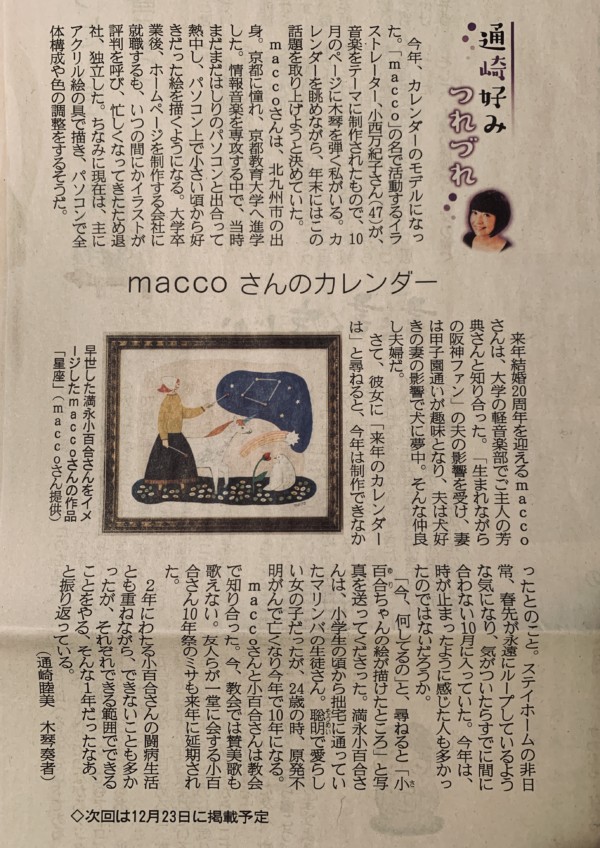 通崎好み
つれづれ
macco さんのカレンダー
今年、カレンダーのモデルになっ
た。「macco」の名で活動するイラ
ストレーター、小西万紀子さん(47)が、
音楽をテーマに制作されたもので、10
月のページに木琴を弾く私がいる。カ
レンダーを眺めながら、年末にはこの
話題を取り上げようと決めていた。
maccoさんは、北九州市の出
身。京都に憧れ、京都教育大学へ進学
した。情報音楽を専攻する中で、当時
まだまだはしりのパソコンと出合って
熱中し、パソコン上で小さい頃から好
きだった絵を描くようになる。大学卒
業後、ホームページを制作する会社に
就職するも、いつの間にかイラストが
評判を呼び、忙しくなってきたため退
社、独立した。ちなみに現在は、主に
アクリル絵の具で描き、パソコンで全
体構成や色の調整をするそうだ。
来年結婚20周年を迎えるmacco
さんは、大学の軽音楽部でご主人の芳
典さんと知り合った。「生まれながら
の阪神ファン」の夫の影響を受け、妻
は甲子園通いが趣味となり、夫は犬好
きの妻の影響で犬に夢中。そんな仲良
し夫婦だ。
さて、彼女に「来年のカレンダー
は」と尋ねると、今年は制作できなか
早世した満永小百合さんをイメ
ージしたmaccoさんの作品
「星座」(maccoさん提供)
ったとのこと。ステイホームの非日
常、春先が永遠にループしているよう
な気になり、気がついたらすでに間に
合わない10月に入っていた。今年は、
時が止まったように感じた人も多かっ
たのではないだろうか。
「今、何してるの」と、尋ねると「小
百合ちゃんの絵が描けたところ」と写
真を送ってくださった。満永小百合さ
んは、小学生の頃から拙宅に通ってい
たマリンバの生徒さん。聡明で愛らし
い女の子だったが、24歳の時、原発不
明がんで亡くなり今年で10年になる。
maccoさんと小百合さんは教会
で知り合った。今、教会では賛美歌も
歌えない。友人らが一堂に会する小百
合さん10年祭のミサも来年に延期され
た。
2年にわたる小百合さんの闘病生活
とも重ねながら、できないことも多か
ったが、それぞれできる範囲でできる
ことをやる、そんな1年だったなあ、
と振り返っている。
(通崎睦美 木琴奏者)
◇次回は12月23日に掲載予定